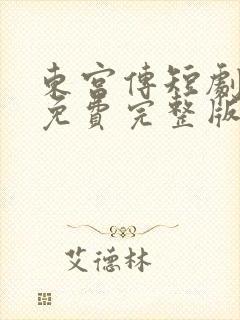 東宮傳短劇
免費完整版
艾德林